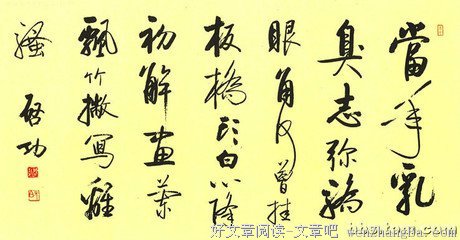 當年乳
臭志弥驕
眼角何曾挂
板橋頭白心降
初解畫蘭
飄竹撇寫離
騷
啟功
好文章阅读-文章吧